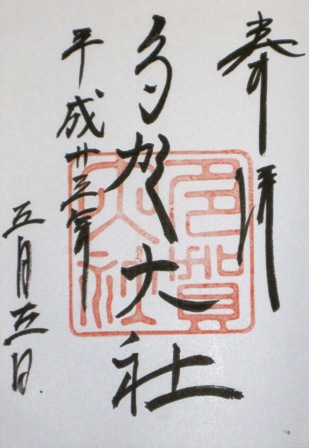 奉拝
多賀大社
多賀大社
平成廿三年
五月五日